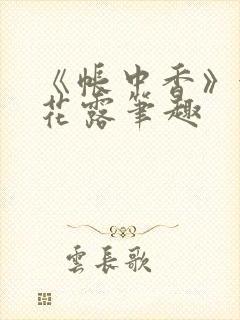 《帳中香》
花露筆趣
雲長歌